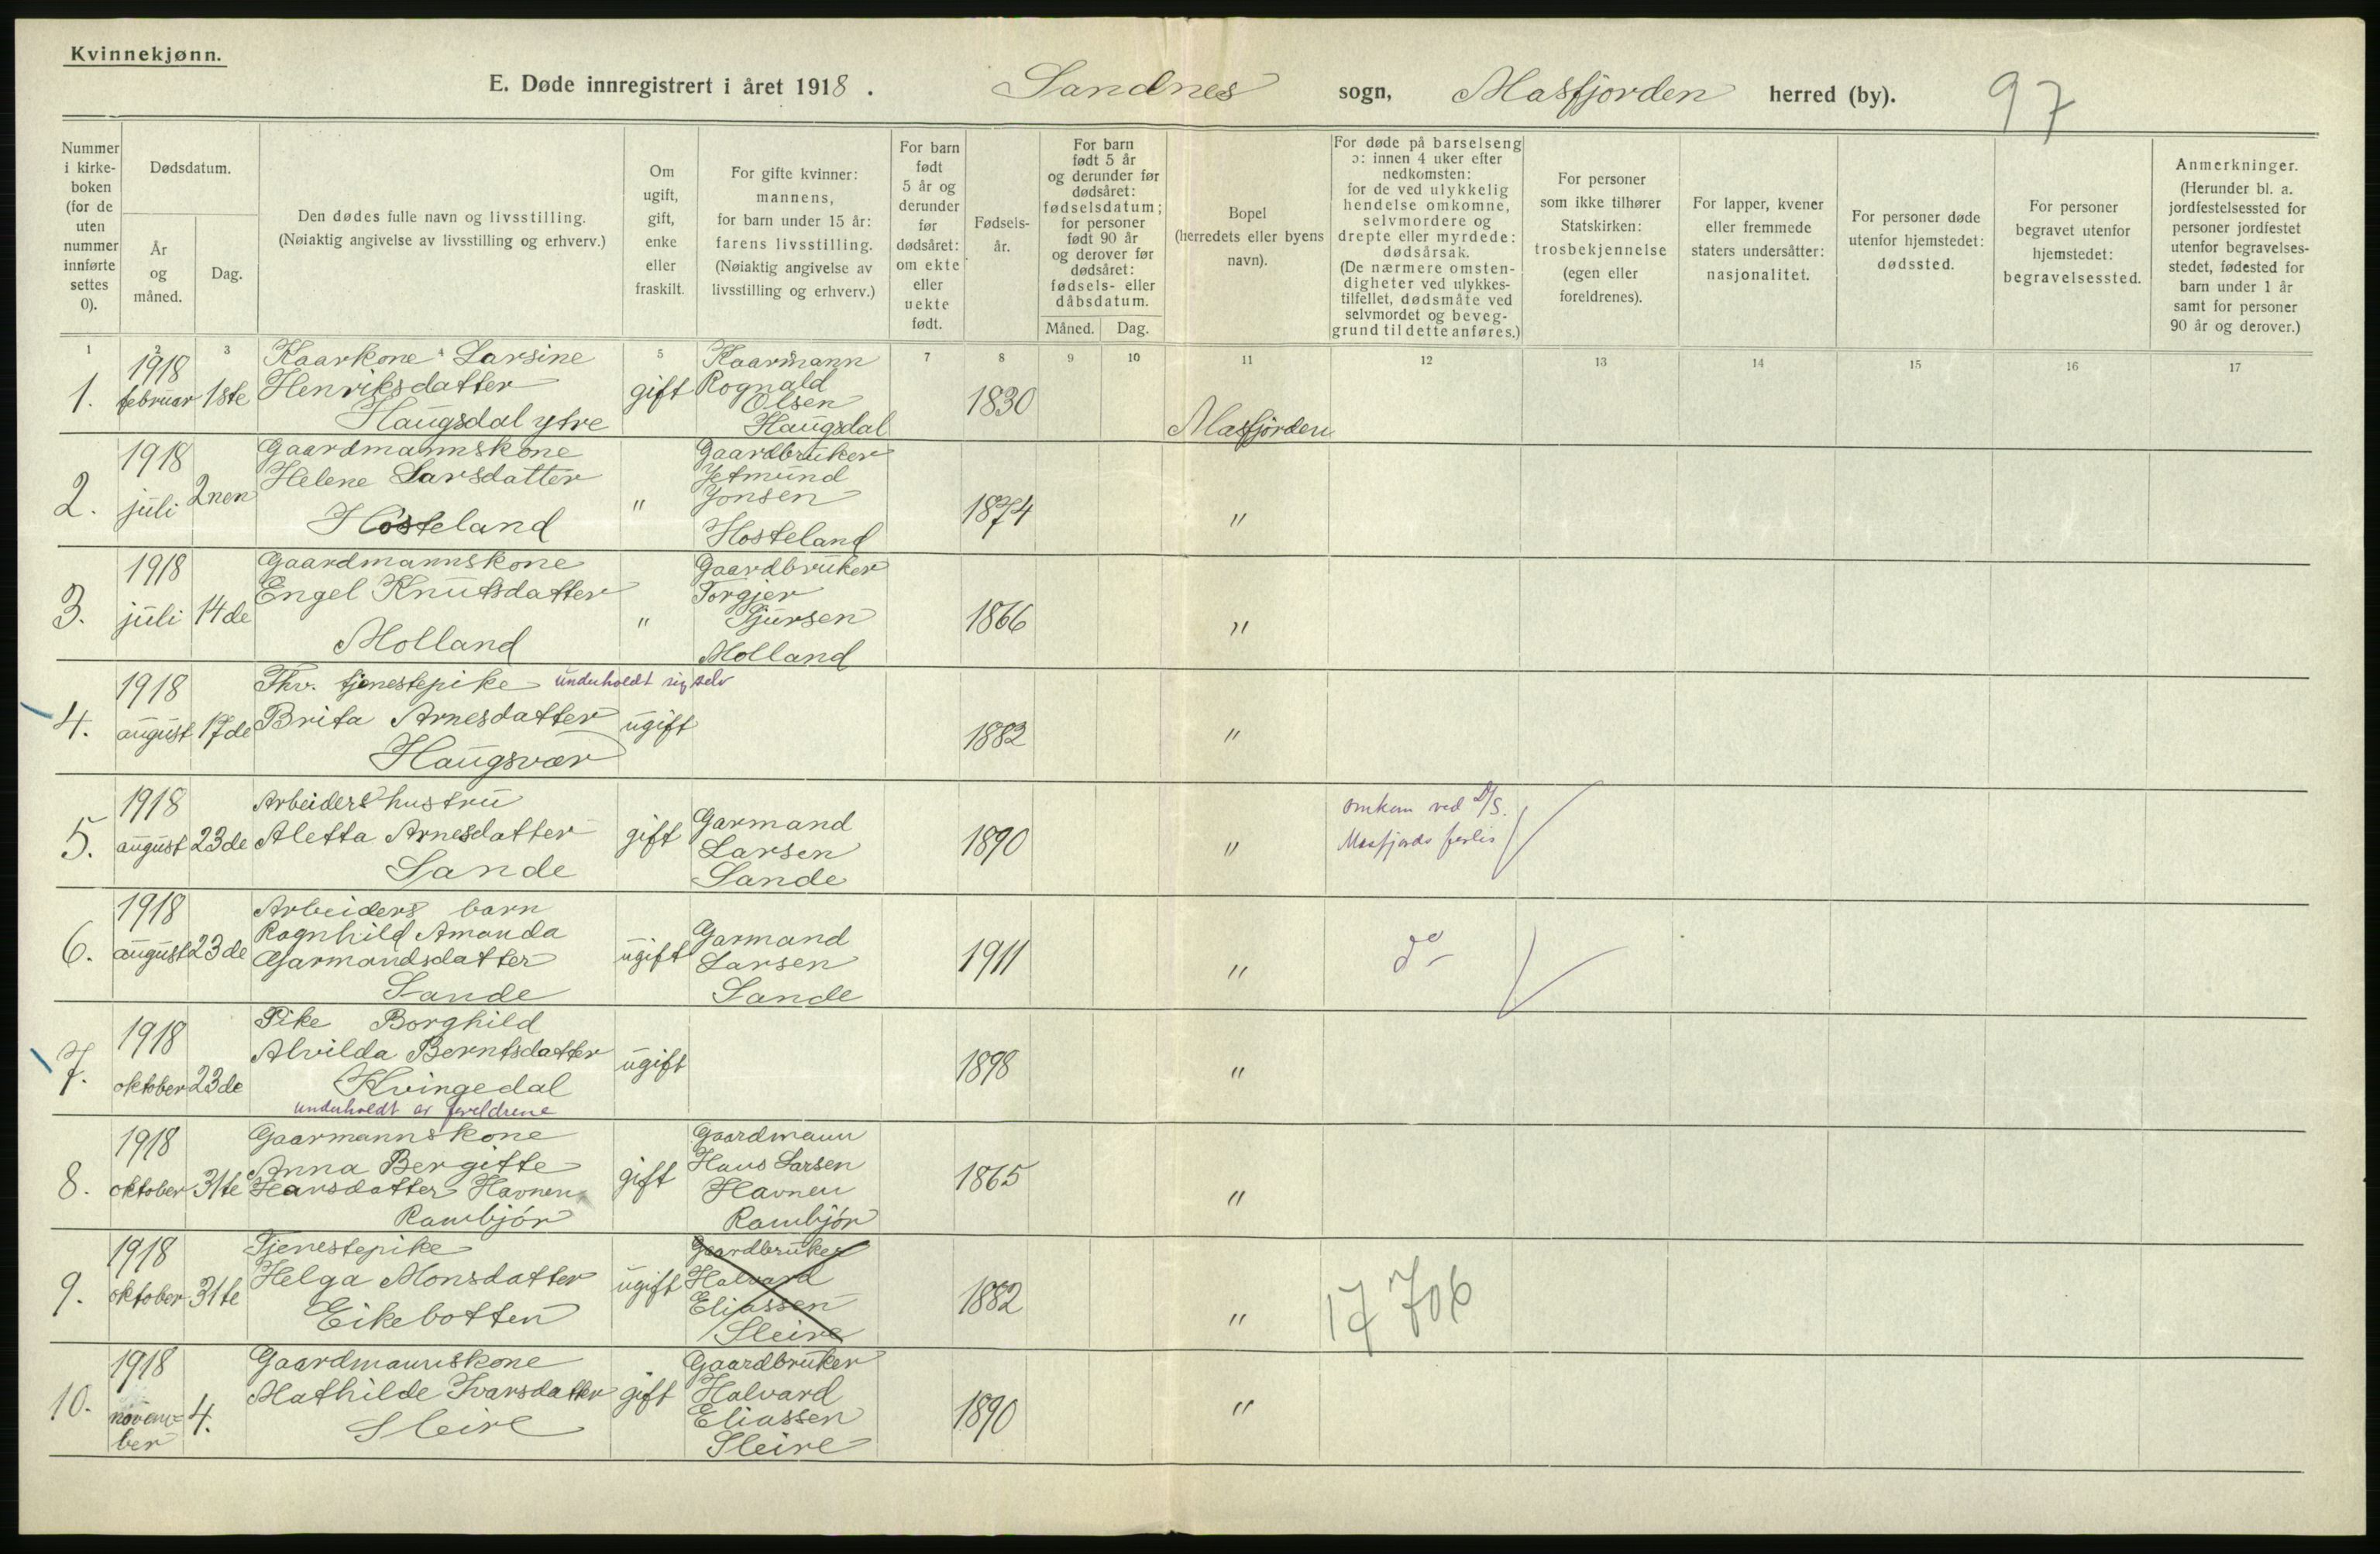 Kvinnekjønn.
E. Døde innregistrert i året 1918. Sandnes sogn, Masfjorden herred (by). 97
Nummer i kirke- boken (for de uten nummer innførte settes 0).
Dødsdatum.
År og måned.
Dag.
Den dødes fulle navn og livsstilling.
(Nøiaktig angivelse av livsstilling og erhverv.)
Om ugift, gift, enke eller fraskilt.
For gifte kvinner: mannens, for barn under 15 år: farens livsstilling.
(Nøiaktig angivelse av livsstilling og erhverv.)
For barn født 5 år og derunder før dødsåret: om ekte eller uekte født.
Fødsels- år.
For barn født 5 år og derunder før dødsåret: fødselsdatum; for personer født 90 år og derover før dødsåret: fødsels- eller dåbsdatum.
Måned.
Dag.
Bopel (herredets eller byens navn).
For døde på barselseng ɔ: innen 4 uker efter nedkomsten: for de ved ulykkelig hendelse omkomne, selvmordere og drepte eller myrdede: dødsårsak.
(De nærmere omsten- digheter ved ulykkes- tilfellet, dødsmåte ved selvmordet og beveg- grund til dette anføres.)
For personer som ikke tilhører Statskirken: trosbekjennelse (egen eller foreldrenes).
For lapper, kvener eller fremmede staters undersåtter: nasjonalitet.
For personer døde utenfor hjemstedet: dødssted.
For personer begravet utenfor hjemstedet: begravelsessted.
Anmerkninger.
(Herunder bl. a. jordfestelsessted for personer jordfestet utenfor begravelses- stedet, fødested for barn under 1 år samt for personer 90 år og derover.)
1 2 3 5 7 8 9 10 11 12 13 14 15 16 17
1. 1918 februar 1ste Kaarkone Larsine Henriksdatter Haugsdal ytre gift Kaarmann Rognald Olsen Haugsdal 1830 Masfjorden
2. 1918 juli 2nen Gaardmannskone Helene Larsdatter Hosteland " Gaardbruker Jetmund Jonsen Hosteland 1874 "
3. 1918 juli 14de Gaardmannskone Engel Knutsdatter Molland " Gaardbruker Torgjer Sjursen Molland 1866 "
4. 1918 august 17de Fhv. tjenestepike underholdt sig selv Brita Arnesdatter Haugsvær ugift 1882 "
5. 1918 august 23de Arbeiders hustru Aletta Arnesdatter Sande gift Garmand Larsen Sande 1890 " omkom ved D/S. Masfjords forlis
6. 1918 august 23de Arbeiders barn Ragnhild Amanda Garmandsdatter Sande ugift Garmand Larsen Sande 1911 " do
7. 1918 oktober 23de Pike Borghild Alvilda Berntsdatter Kvingedal underholdt av foreldrene ugift 1898 "
8. 1918 oktober 31te Gaarmannskone Anna Bergitte Hansdatter Havnen Rambjør gift Gaardmann Hans Larsen Havnen Rambjør 1865 "
9. 1918 oktober 31te Tjenestepike Helga Monsdatter Eikebotten ugift Gaardbruker Halvard Eliassen Sleire 1882 " 17 706
10. 1918 novem= ber 4. Gaardmannskone Mathilde Ivarsdatter Sleire gift Gaardbruker Halvard Eliassen Sleire 1890 "